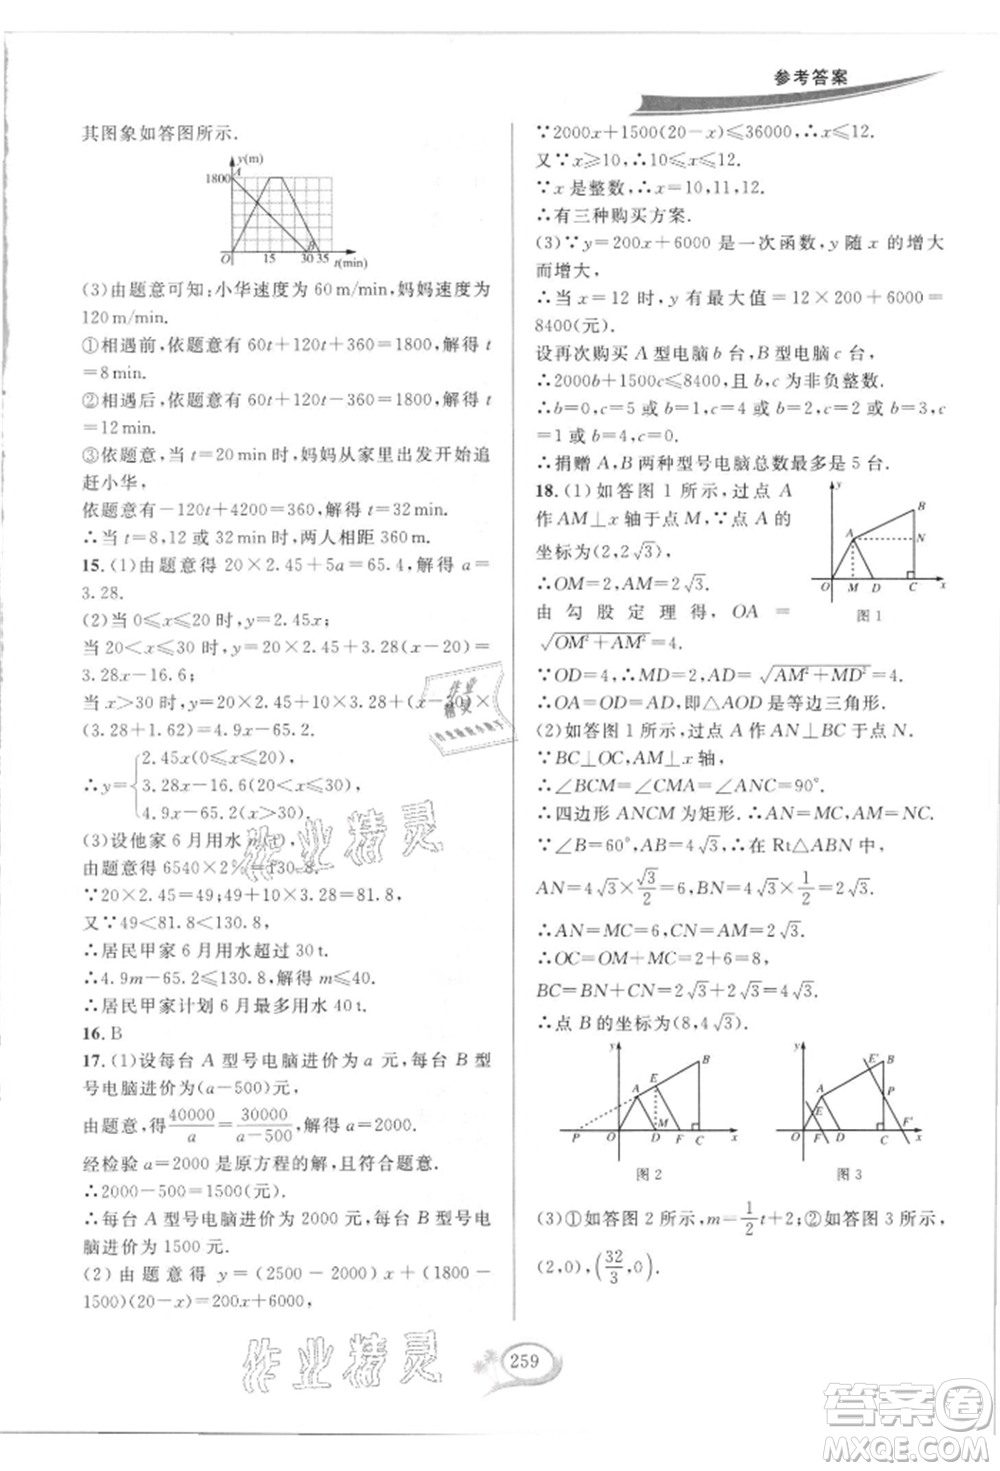 参考答案
其图象如答图所示.
y(m)
A
1800
O
15
30 35
B
t(min)
(3)由题意可知:小华速度为 60 m/min,妈妈速度为
120 m/min.
①相遇前,依题意有 60t+120t+360=1800,解得 t
=8 min.
②相遇后,依题意有 60t+120t-360=1800,解得 t
=12 min.
③依题意,当 t=20 min 时,妈妈从家里出发开始追
赶小华,
依题意有-120t+4200=360,解得 t=32 min.
∴当 t=8,12 或 32 min 时,两人相距 360 m.
15.(1)由题意得 20×2.45+5a=65.4,解得 a=
3.28.
(2)当 0≤x≤20 时,y=2.45x;
当 20<x≤30 时,y=20×2.45+3.28(x-20)=
3.28x-16.6;
当 x>30 时,y=20×2.45+10×3.28+(x-30)×
(3.28+1.62)=4.9x-65.2.
∴y={2.45x(0≤x≤20)
3.28x-16.6(20<x≤30)
4.9x-65.2(x>30)
(3)设他家 6 月用水 m(t),
由题意得 6540×2%=130.8.
∵20×2.45=49;49+10×3.28=81.8,
又∵49<81.8<130.8,
∴居民甲家 6 月用水超过 30 t.
∴4.9m-65.2≤130.8,解得 m≤40.
∴居民甲家计划 6 月最多用水 40 t.
16.B
17.(1)设每台 A 型号电脑进价为 a 元,每台 B 型
号电脑进价为(a-500)元,
由题意,得40000/a=30000/(a-500),解得 a=2000.
经检验 a=2000 是原方程的解,且符合题意.
∴2000-500=1500(元).
∴每台 A 型号电脑进价为 2000 元,每台 B 型号电
脑进价为 1500 元.
(2)由题意得 y=(2500-2000)x+(1800-
1500)(20-x)=200x+6000,
∵2000x+1500(20-x)≤36000,∴x≤12.
又∵x≥10,∴10≤x≤12.
∵x 是整数,∴x=10,11,12.
∴有三种购买方案.
(3)∵y=200x+6000 是一次函数,y 随 x 的增大
而增大,
∴当 x=12 时,y 有最大值=12×200+6000=
8400(元).
设再次购买 A 型电脑 b 台,B 型电脑 c 台,
∴2000b+1500c≤8400,且 b,c 为非负整数.
∴b=0,c=5 或 b=1,c=4 或 b=2,c=2 或 b=3,
c=1 或 b=4,c=0.
∴捐赠 A,B 两种型号电脑总数最多是 5 台.
18.(1)如答图 1 所示,过点 A
作 AM⊥x 轴于点 M,∵点 A 的
坐标为(2,2√3),
∴OM=2,AM=2√3.
由勾股定理得,OA=
√OM²+AM²=4.
y
B
A
N
O M D C x
图 1
∵OD=4,∴MD=2,AD=√AM²+MD²=4.
∴OA=OD=AD,即△AOD 是等边三角形.
(2)如答图 1 所示,过点 A 作 AN⊥BC 于点 N.
∵BC⊥OC,AM⊥x 轴,
∴∠BCM=∠CMA=∠ANC=90°.
∴四边形 ANCM 为矩形.∴AN=MC,AM=NC.
∵∠B=60°,AB=4√3,∴在 Rt△ABN 中,
AN=4√3×√3/2=6,BN=4√3×1/2=2√3.
∴AN=MC=6,CN=AM=2√3.
∴OC=OM+MC=2+6=8,
BC=BN+CN=2√3+2√3=4√3.
∴点 B 的坐标为(8,4√3).
y
B
E
A
M
P O D F C x
图 2
y
E′
B
A
P
E
O F C F′ x
图 3
(3)①如答图 2 所示,m=1/2t+2;②如答图 3 所示,
(2,0),(32/3,0).
作业精灵
作业精灵
作业精灵
259
答案卷
MXQE.COM